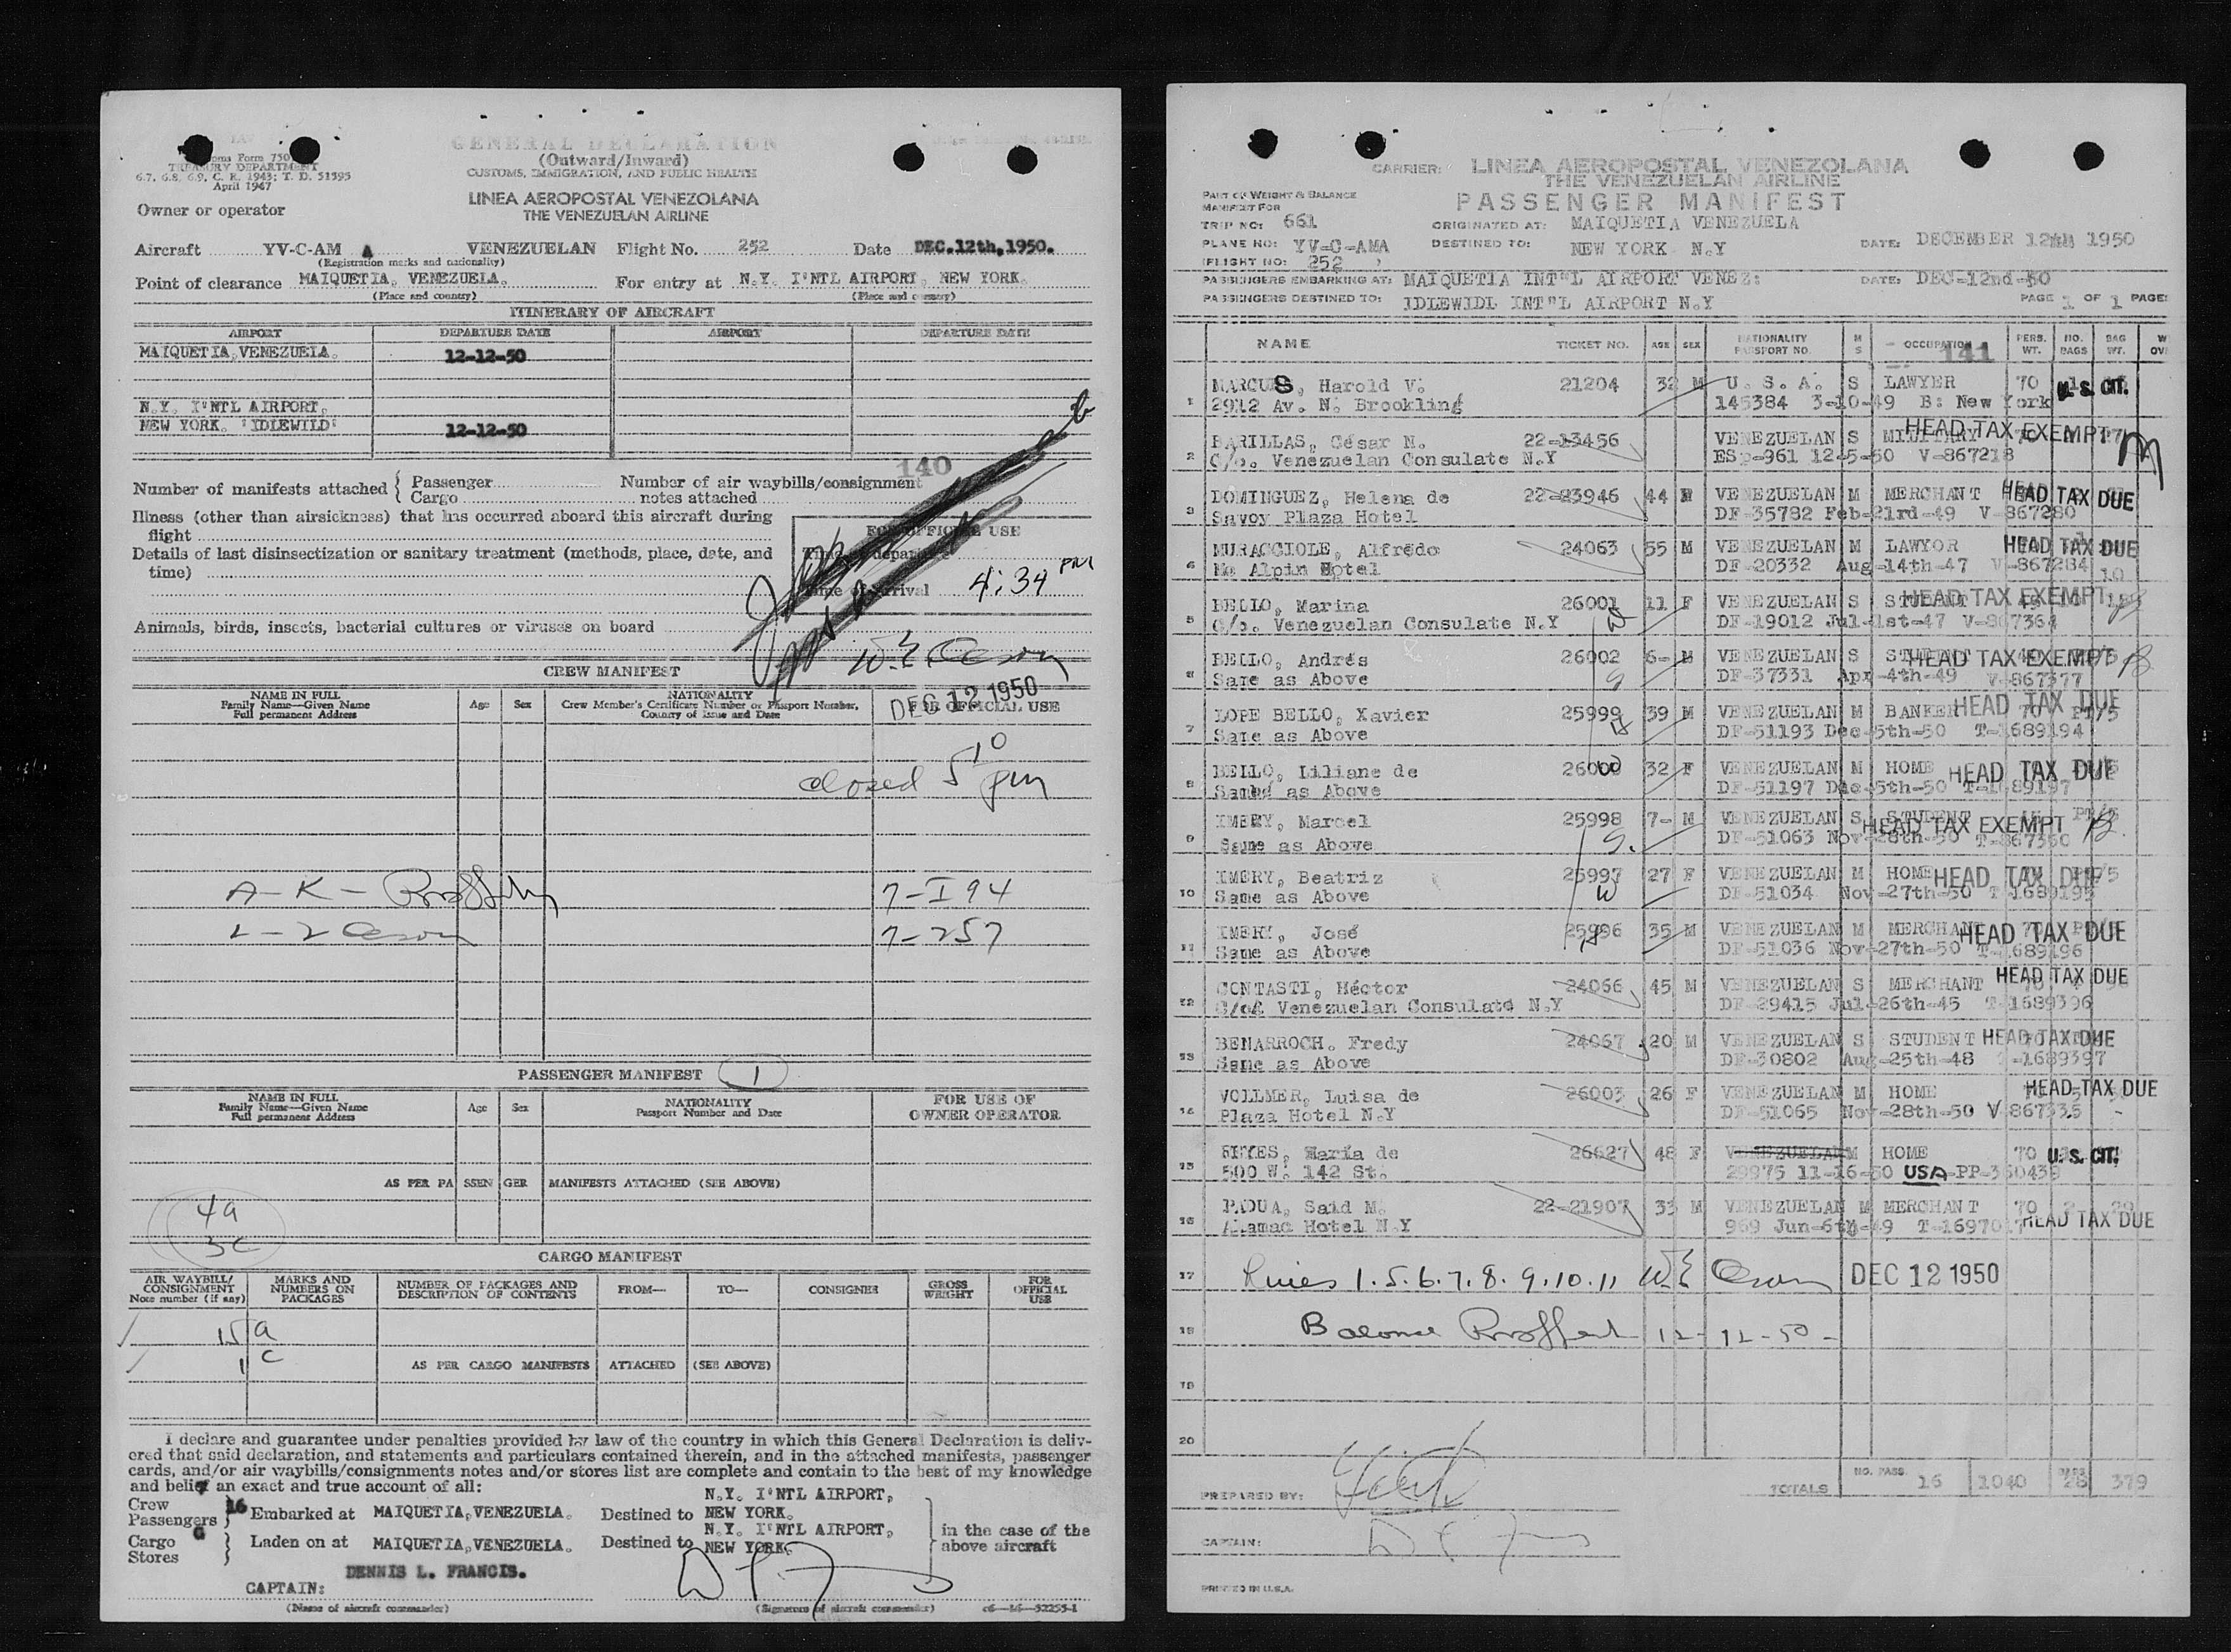 Customs Form 750
TREASURY DEPARTMENT
6.7, 6.8, 6.9, C. R. 1943; T. D. 51595
April 1947
GENERAL DECLARATION
(Outward/Inward)
CUSTOMS, IMMIGRATION, AND PUBLIC HEALTH
LINEA AEROPOSTAL VENEZOLANA
THE VENEZUELAN AIRLINE
Owner or operator
Aircraft YV-C-AM A VENEZUELAN Flight No. 252 Date DEC.12th,1950.
(Registration marks and nationality)
Point of clearance MAIQUETIA, VENEZUELA. For entry at N.Y. I'NTL AIRPORT, NEW YORK.
(Place and country) (Place and country)
ITINERARY OF AIRCRAFT
AIRPORT DEPARTURE DATE AIRPORT DEPARTURE DATE
MAIQUETIA,VENEZUELA. 12-12-50
N.Y. I'NTL AIRPORT,
NEW YORK. 'IDLEWILD' 12-12-50
140
Number of manifests attached { Passenger Number of air waybills/consignment
Cargo notes attached
Illness (other than airsickness) that has occurred aboard this aircraft during
flight
FOR OFFICIAL USE
Details of last disinsectization or sanitary treatment (methods, place, date, and
time)
Time of departure
Time of arrival 4:34 PM
Animals, birds, insects, bacterial cultures or viruses on board
CREW MANIFEST
DEC 12 1950
NAME IN FULL
Family Name—Given Name
Full permanent Address
Age Sex
NATIONALITY
Crew Member's Certificate Number or Passport Number,
Country of Issue and Date
FOR OFFICIAL USE
closed 5 10 pm
7-I94
7-257
PASSENGER MANIFEST 1
NAME IN FULL
Family Name—Given Name
Full permanent Address
Age Sex
NATIONALITY
Passport Number and Date
FOR USE OF
OWNER OPERATOR
AS PER PA SSEN GER MANIFESTS ATTACHED (SEE ABOVE)
4a
3c
CARGO MANIFEST
AIR WAYBILL/
CONSIGNMENT
Note number (if any)
MARKS AND
NUMBERS ON
PACKAGES
NUMBER OF PACKAGES AND
DESCRIPTION OF CONTENTS
FROM— TO— CONSIGNEE
GROSS
WEIGHT
FOR
OFFICIAL
USE
15 a
1 c
AS PER CARGO MANIFESTS ATTACHED (SEE ABOVE)
I declare and guarantee under penalties provided by law of the country in which this General Declaration is deliv-
ered that said declaration, and statements and particulars contained therein, and in the attached manifests, passenger
cards, and/or air waybills/consignments notes and/or stores list are complete and contain to the best of my knowledge
and belief an exact and true account of all:
Crew
Passengers } 16 Embarked at MAIQUETIA,VENEZUELA. Destined to N.Y. I'NTL AIRPORT, NEW YORK.
Cargo
Stores } Laden on at MAIQUETIA,VENEZUELA. Destined to N.Y. I'NTL AIRPORT, NEW YORK.
in the case of the
above aircraft
DENNIS L. FRANCIS.
CAPTAIN:
(Name of aircraft commander) (Signature of aircraft commander) c6—16—52255-1
CARRIER: LINEA AEROPOSTAL VENEZOLANA
THE VENEZUELAN AIRLINE
PART OF WEIGHT & BALANCE
MANIFEST FOR
PASSENGER MANIFEST
TRIP NO: 661 ORIGINATED AT: MAIQUETIA VENEZUELA
PLANE NO: YV-C-AMA DESTINED TO: NEW YORK N.Y DATE: DECEMBER 12 1950
FLIGHT NO: 252
PASSENGERS EMBARKING AT: MAIQUETIA INT"L AIRPORT VENEZ: DATE: DEC-12nd-50
PASSENGERS DESTINED TO: IDLEWIDL INT"L AIRPORT N.Y PAGE 1 OF 1 PAGE:
NAME TICKET NO. AGE SEX NATIONALITY PASSPORT NO. M S OCCUPATION PERS. WT. NO. BAGS BAG WT. W OV
141
1 MARCUS, Harold V. 21204 32 M U. S. A. S LAWYER 70 U. S. CIT.
2912 Av. N. Brookling 145384 3-10-49 B: New York
2 BARILLAS, César N. 22-13456 VENEZUELAN S MILITARY HEAD TAX EXEMPT
C/o. Venezuelan Consulate N.Y ESp-961 12-5-50 V-867218
3 DOMINGUEZ, Helena de 22-83946 44 VENEZUELAN M MERCHANT HEAD TAX DUE
Savoy Plaza Hotel DF-35782 Feb-21rd-49 V-867280
MURACCIOLE, Alfredo 24063 55 M VENEZUELAN M LAWYOR HEAD TAX DUE
Mc Alpin Hotel DF-20332 Aug-14th-47 V-867284
5 BELLO, Marina 26001 11 F VENEZUELAN S STUDENT HEAD TAX EXEMPT
C/o. Venezuelan Consulate N.Y DF-19012 Jul-1st-47 V-867364
6 BELLO, Andrés 26002 6- M VENEZUELAN S STUDENT HEAD TAX EXEMPT
Same as Above DF-37331 Apr-4th-49 V-867377
7 LOPE BELLO, Xavier 25999 39 M VENEZUELAN M BANKER HEAD TAX DUE
Same as Above DF-51193 Dec-5th-50 T-1689194
8 BELLO, Liliane de 26000 32 F VENEZUELAN M HOME HEAD TAX DUE
Same as Above DF-51197 Dec-5th-50 T-1689197
9 IMERY, Marcel 25998 7- M VENEZUELAN S STUDENT HEAD TAX EXEMPT
Same as Above DF-51063 Nov-28th-50 T-867360
10 IMERY, Beatriz 25997 27 F VENEZUELAN M HOME HEAD TAX DUE
Same as Above DF-51034 Nov-27th-50 T-1689195
11 IMERY, José 25996 35 M VENEZUELAN M MERCHANT HEAD TAX DUE
Same as Above DF-51036 Nov-27th-50 T-1689196
12 CONTASTI, Héctor 24066 45 M VENEZUELAN S MERCHANT HEAD TAX DUE
C/o Venezuelan Consulate N.Y DF-29415 Jul-26th-45 T-1689396
13 BENARROCH. Fredy 24067 20 M VENEZUELAN S STUDENT HEAD TAX DUE
Same as Above DF-30802 Aug-25th-48 T-1689397
14 VOLLMER, Luisa de 26003 26 F VENEZUELAN M HOME HEAD TAX DUE
Plaza Hotel N.Y DF-51065 Nov-28th-50 V-867335
15 REYES, María de 26627 48 F VENEZUELAN M HOME 70 U. S. CIT.
500 W. 142 St. 29975 11-16-50 USA-PP-360439
16 PADUA, Said M. 22-21907 33 M VENEZUELAN M MERCHANT 70 2
Alamac Hotel N.Y 969 Jun-6th-49 T-1697017 HEAD TAX DUE
17 Lines 1.5.6.7.8.9.10.11 DEC 12 1950
18 Balance 12-12-50-
19
20
PREPARED BY: TOTALS NO. PASS. 16 1040 28 379
CAPTAIN:
PRINTED IN U.S.A.